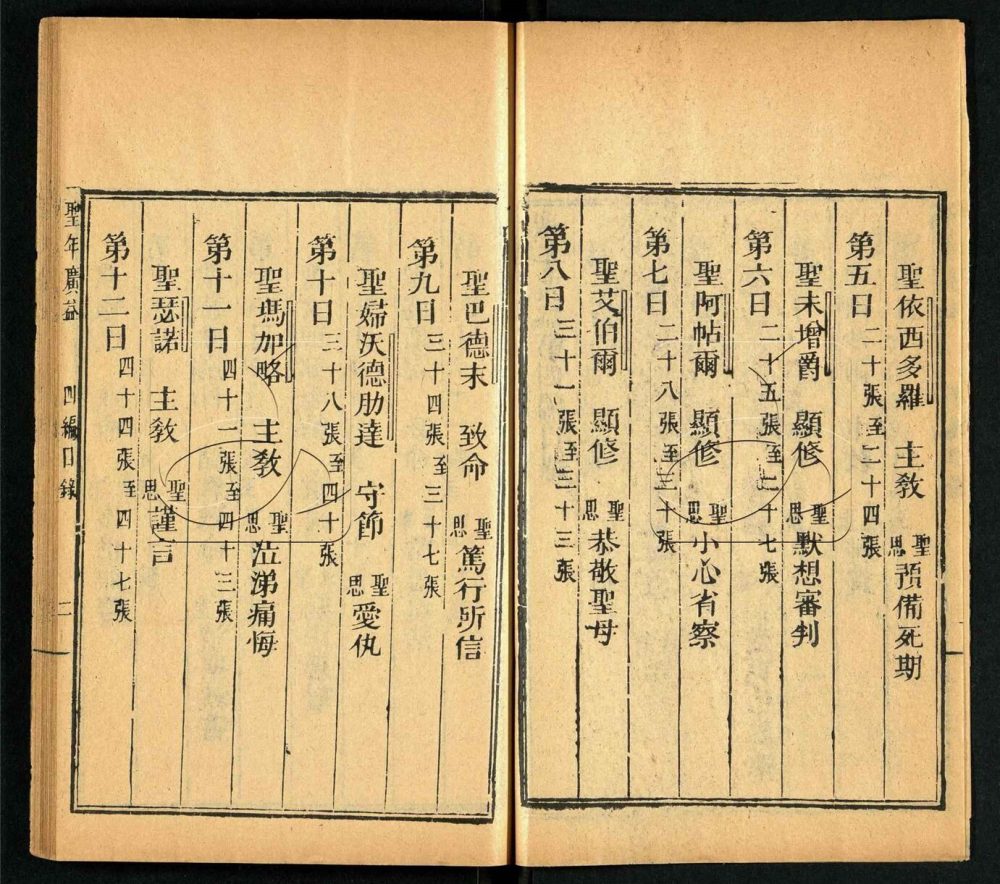 聖依西多羅 主敎 聖思 預備死期
第五日 二十張至二十四張
聖未增爵 顯修 聖思 默想審判
第六日 二十五張至二十七張
聖阿帖爾 顯修 聖思 小心省察
第七日 二十八張至三十張
聖艾伯爾 顯修 聖思 恭敬聖母
第八日 三十一張至三十三張
聖巴德末 致命 聖思 篤行所信
第九日 三十四張至三十七張
聖婦沃德肋達 守節 聖思 愛仇
第十日 三十八張至四十張
聖瑪加略 主敎 聖思 泣涕痛悔
第十一日 四十一張至四十三張
聖瑟諾 主敎 聖思 謹言
第十二日 四十四張至四十七張
聖年廣益 四編目錄 二